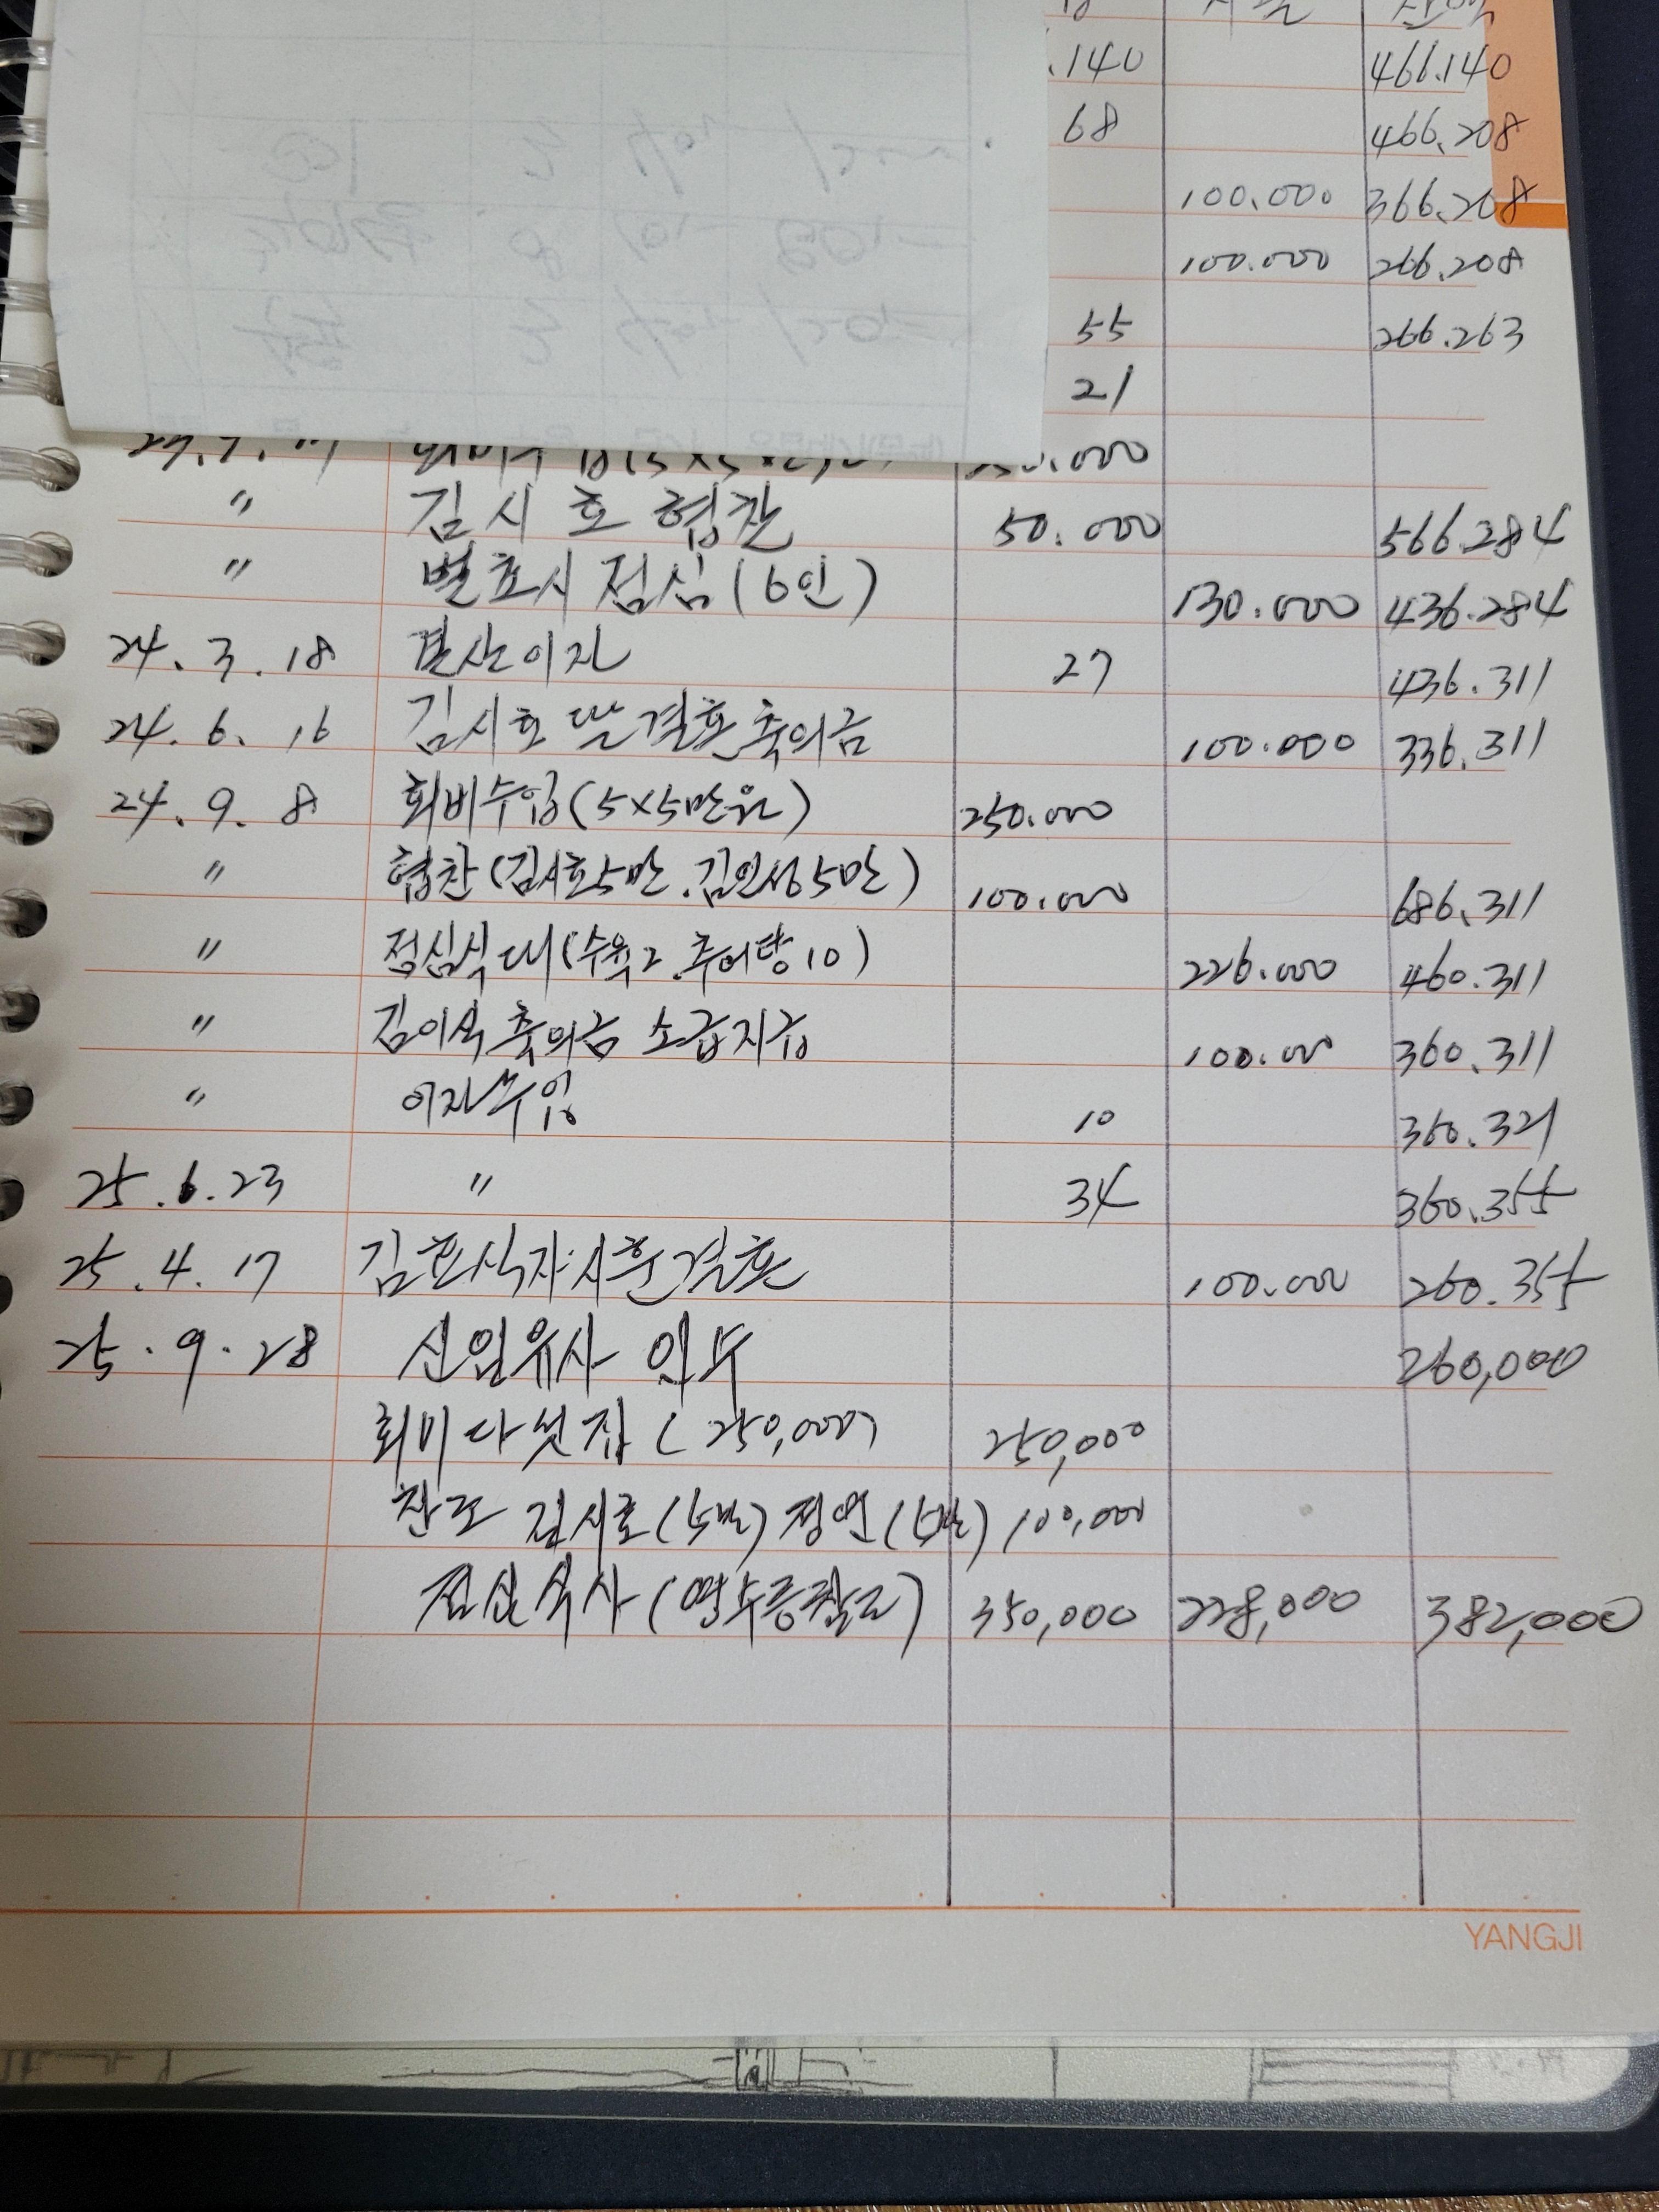 .140 466.140
68 466.208
100.000 366.208
100.000 266.208
55 266.263
21
" 김시호 협찬 50.000 566.284
" 벌초시 점심(6인) 130.000 436.284
24. 3. 18 결산이자 27 436.311
24. 6. 16 김시호 딸 결혼 축의금 100.000 336.311
24. 9. 8 회비수입(5×5만원) 250.000
" 협찬(김시호5만. 김인성5만) 100.000 686.311
" 점심식대(수육2. 추어탕10) 226.000 460.311
" 김이식 축의금 소급지급 100.000 360.311
" 이자수입 10 360.321
25. 6. 23 " 34 360.355
25. 4. 17 결혼 100.000 260.355
25. 9. 28 신임유사 인수 260,000
회비 다섯집 (250,000) 250,000
찬조 김시호(5만) (5만) 100,000
점심식사 (영수증참조) 350,000 228,000 382,000
YANGJI